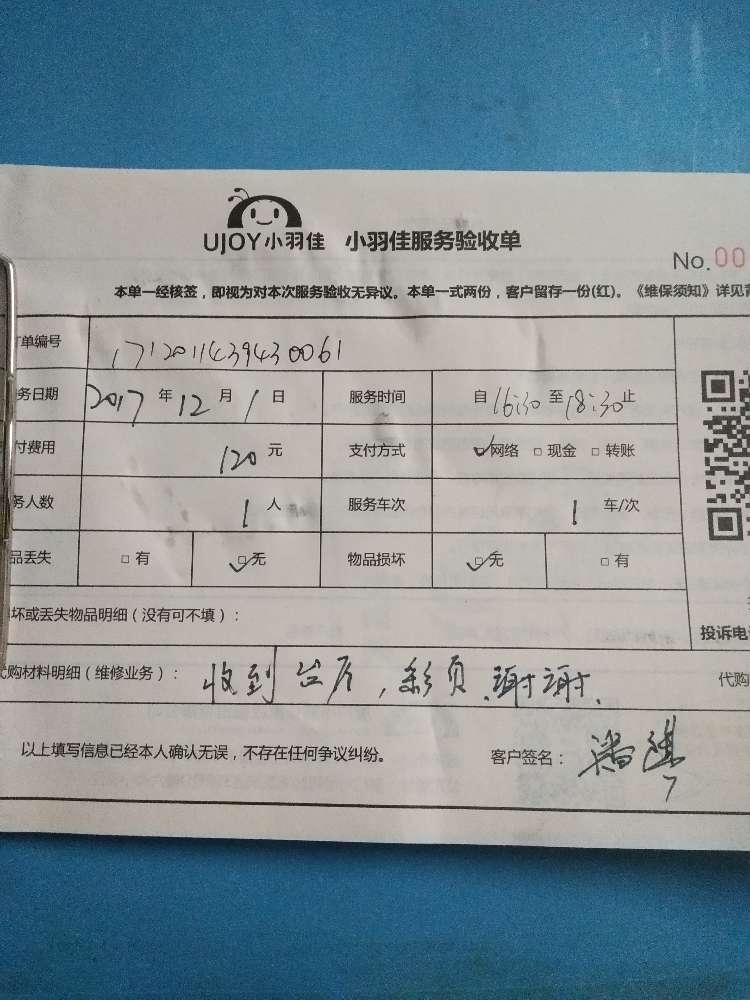 UJOY小羽佳 小羽佳服务验收单
No.00
本单一经核签，即视为对本次服务验收无异议。本单一式两份，客户留存一份(红)。《维保须知》详见
订单编号 1712011439430061
务日期 2017 年 12 月 1 日 服务时间 自 16:30 至 18:30 止
付费用 120 元 支付方式 网络 现金 转账
务人数 1 人 服务车次 1 车/次
品丢失 有 无 物品损坏 无 有
坏或丢失物品明细（没有可不填）：
投诉电
代购材料明细（维修业务）： 收到台历，彩页 谢谢. 代购
以上填写信息已经本人确认无误，不存在任何争议纠纷。 客户签名：